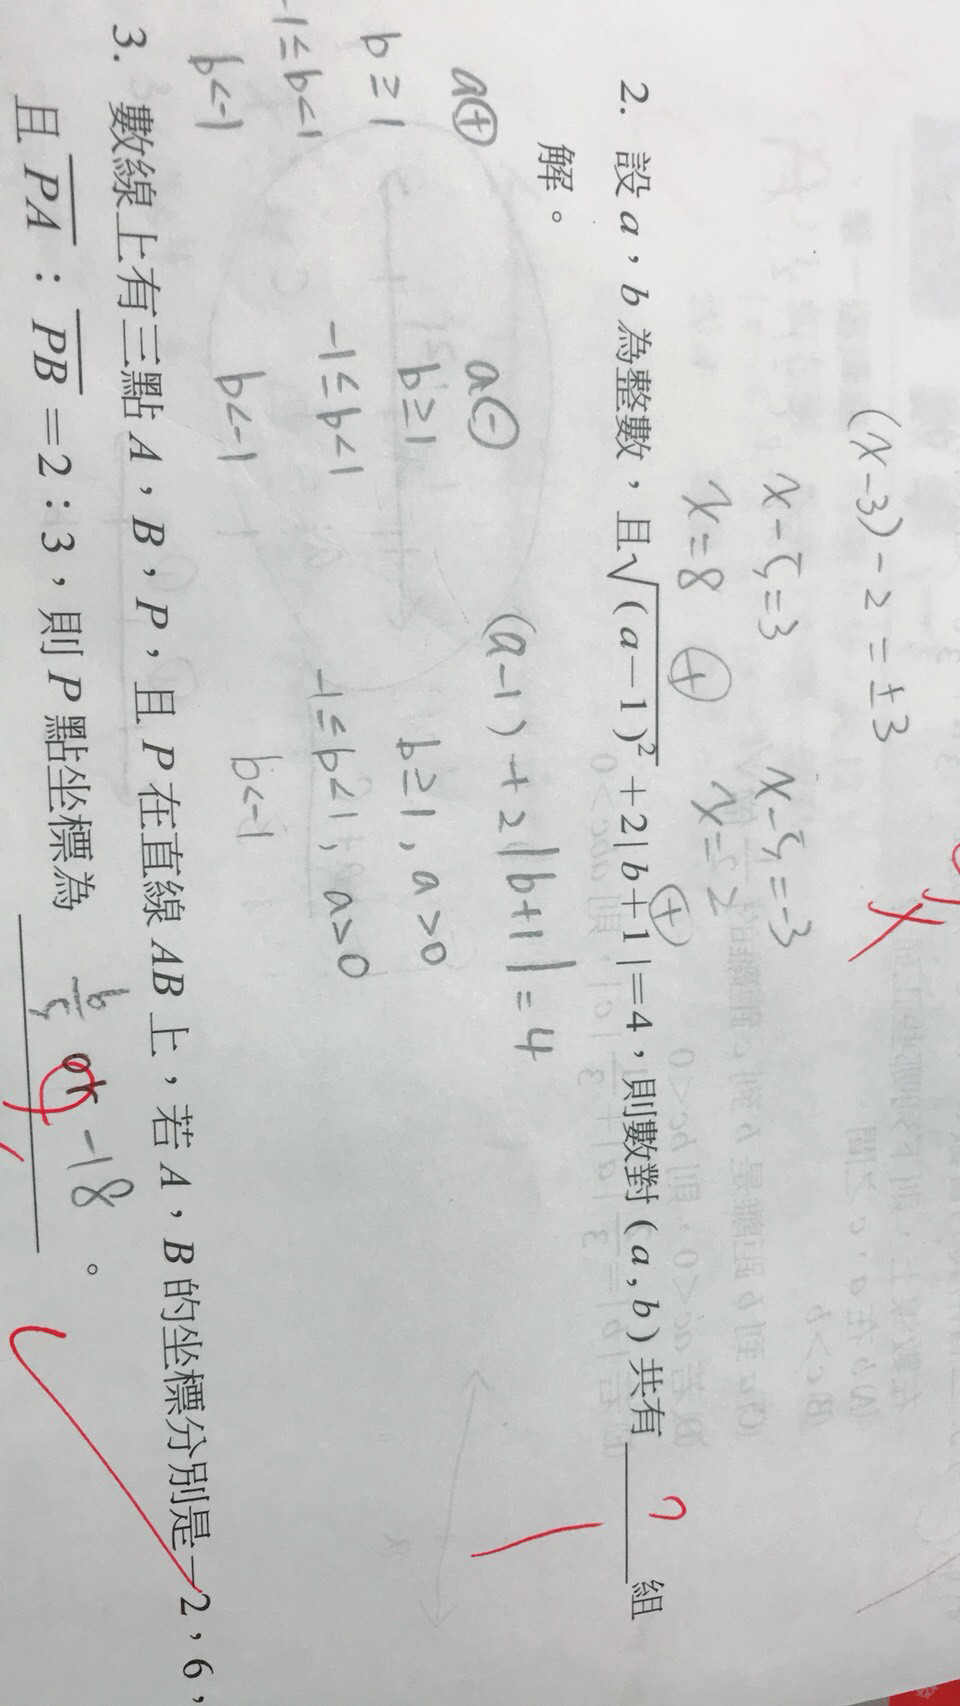 (x-3)-2=±3
x-5=3 x-5=-3
x=8 x=2
2. 設a,b為整數,且√(a-1)²+2|b+1|=4,則數對(a,b)共有____組
解。
(a-1)+2|b+1|=4
a⊕ a⊖
b≥1 b≥1 b≥1, a>0
-1≤b<1 -1≤b<1 -1≤b<1, a>0
b<-1 b<-1 b<-1
3. 數線上有三點A,B,P,且P在直線AB上,若A,B的坐標分別是-2,6,
且PA:PB=2:3,則P點坐標為 6/5 or -18。